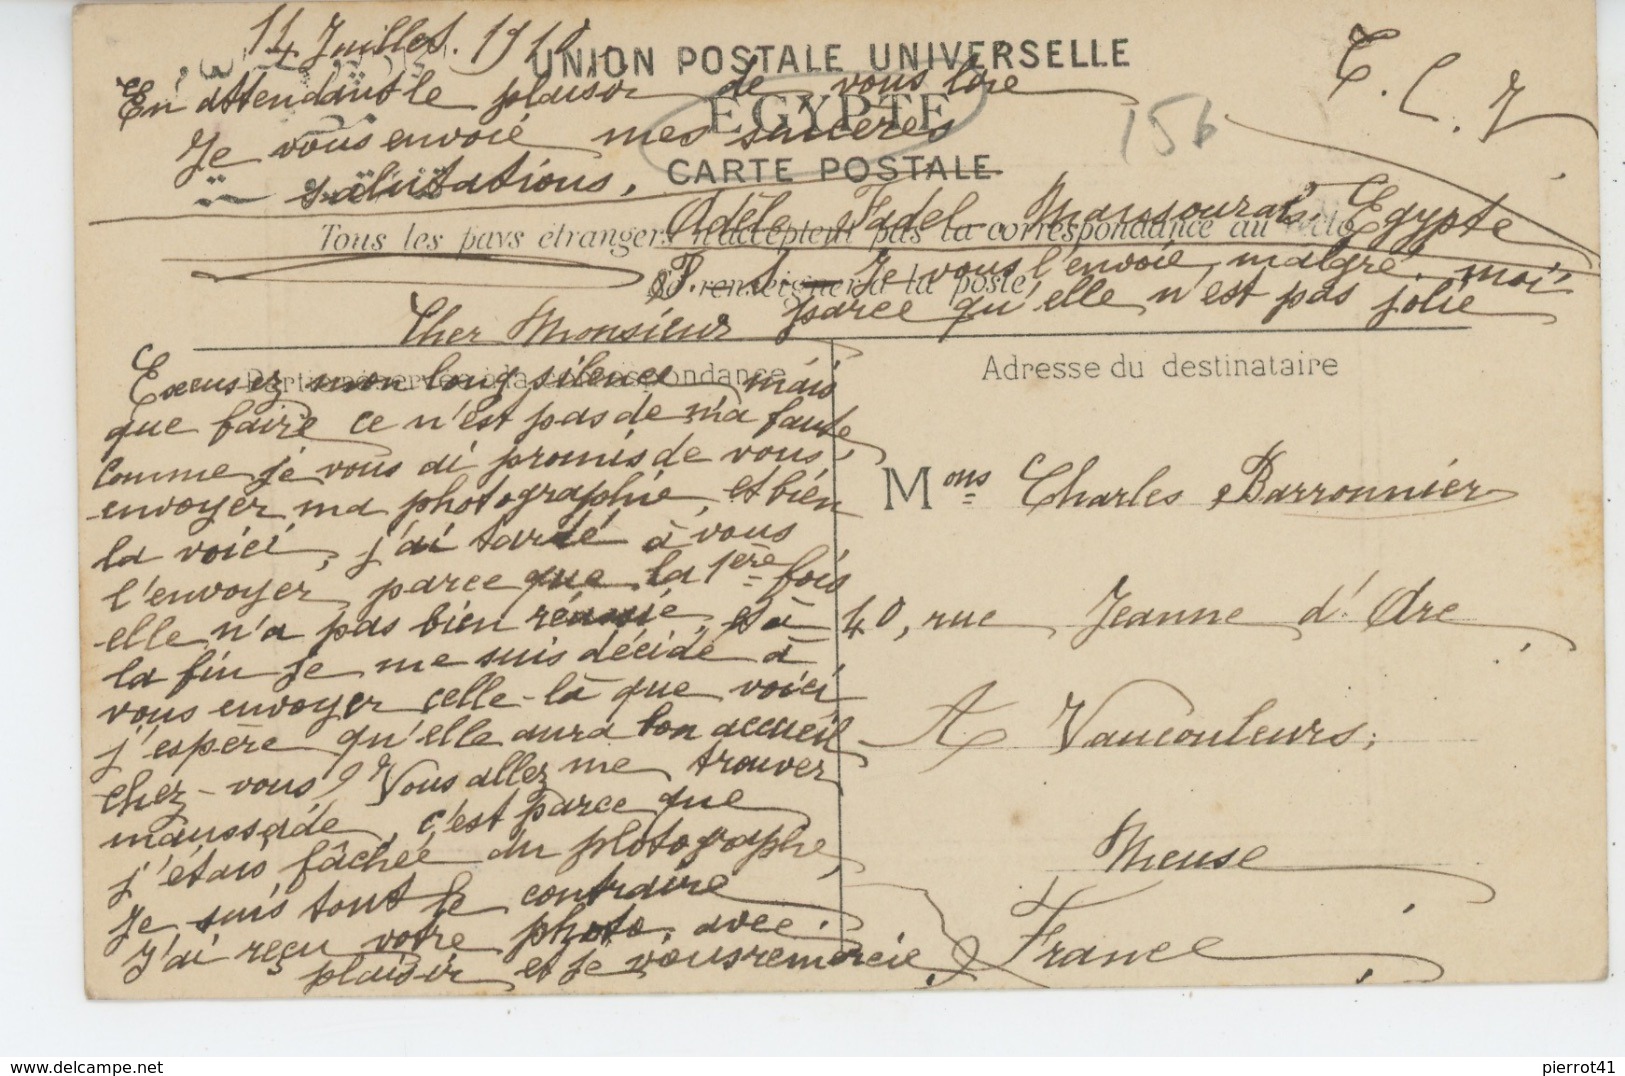 14 Juillet. 1910
UNION POSTALE UNIVERSELLE
EGYPTE
CARTE POSTALE
T. C. J.
156
En attendant le plaisir de vous lire
Je vous envoie mes sincères
salutations,
Adèle Fadel. Mansourah, Egypte
Tous les pays étrangers n'acceptent pas la correspondance au recto
se renseigner à la poste
P. S. Je vous l'envoie, malgré moi
parce qu'elle n'est pas jolie
Cher Monsieur
Partie réservée à la correspondance
Adresse du destinataire
Excusez mon long silence mais
que faire ce n'est pas de ma faute,
comme je vous ai promis de vous
envoyer ma photographie, et bien
la voici, j'ai tardé à vous
l'envoyer, parce que la 1ère fois
elle n'a pas bien réussie, et à
la fin je me suis décidé à
vous envoyer celle-là que voici,
j'espère qu'elle aura bon accueil
chez-vous? Vous allez me trouver
maussade, c'est parce que
j'étais fâchée du photographe,
Je suis tout le contraire
J'ai reçu votre photo, avec
plaisir et je vous remercie.
Mons Charles Barronnier
40, rue Jeanne d'Arc,
A Vaucouleurs,
Meuse
France
pierrot41